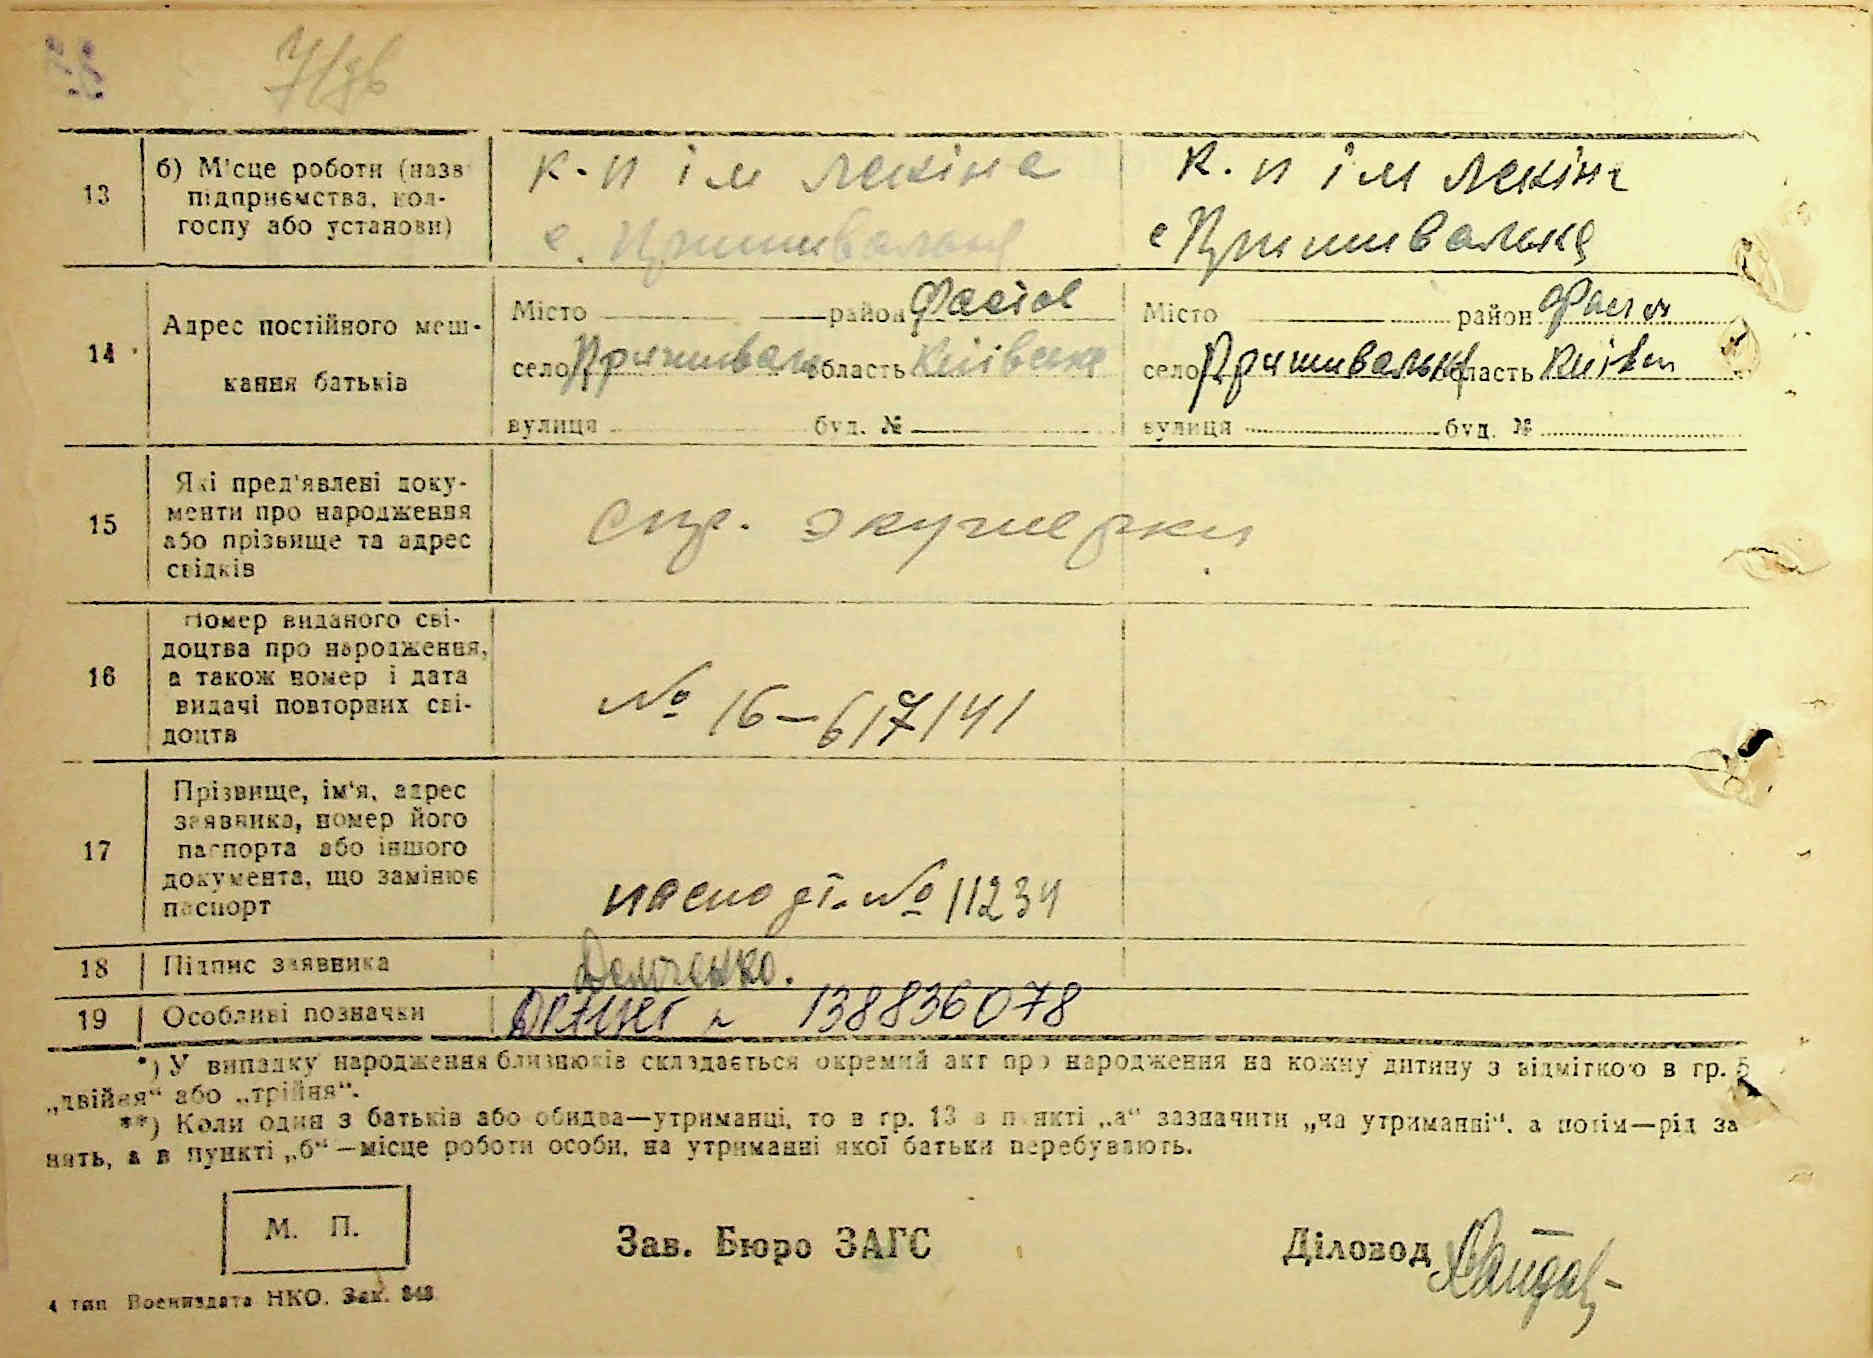 13
б) Місце роботи (назв
підприємства, кол-
госпу або установи)
к.п ім Леніна
с. Пришивальня
к.п ім Леніна
с Пришивальня
14
Адрес постійного меш-
кання батьків
Місто район Фастів
село Пришиваль область Київська
вулиця буд. №
Місто район Фастів
село Пришивальня область Київськ
вулиця буд. №
15
Які пред'явлені доку-
менти про народження
або прізвище та адрес
свідків
спр. экушерки
16
Номер виданого сві-
доцтва про народження,
а також номер і дата
видачі повторних сві-
доцтв
№ 16–617141
17
Прізвище, ім'я, адрес
заявника, номер його
паспорта або іншого
документа, що замінює
паспорт
№ 11234
18
Підпис заявника
Демченко.
19
Особливі позначки
138836078
*) У випадку народження близнюків складається окремий акт про народження на кожну дитину з відміткою в гр. 5
„двійня“ або „трійня“.
**) Коли один з батьків або обидва—утриманці, то в гр. 13 в пункті „а“ зазначити „на утриманні“, а потім—рід за
нять, а в пункті „б“—місце роботи особи, на утриманні якої батьки перебувають.
М. П.
Зав. Бюро ЗАГС
Діловод
4 тип Воениздата НКО. Зак. 848